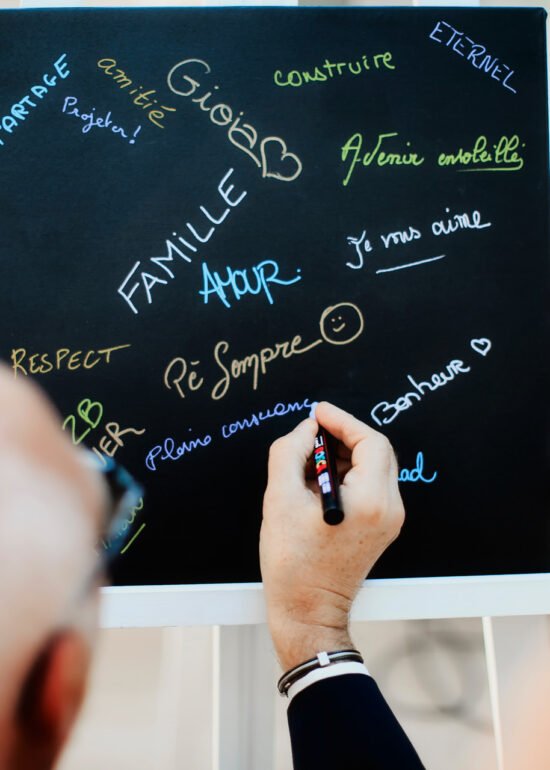 PARTAGE
amitié
Projeter!
Gioia
construire
ETERNEL
Avenir ensoleillé
FAMILLE
Je vous aime
AMOUR
RESPECT
Pè Sempre
Bonheur
2B
Plaine conscienc
POSCA